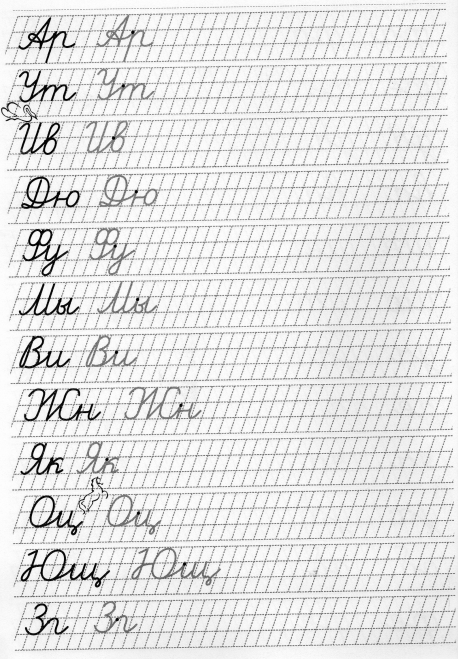 Ар Ар
Ут Ут
Ив Ив
Дю Дю
Фу Фу
Мы Мы
Ви Ви
Жн Жн
Як Як
Оц Оц
Ющ Ющ
Зг Зг